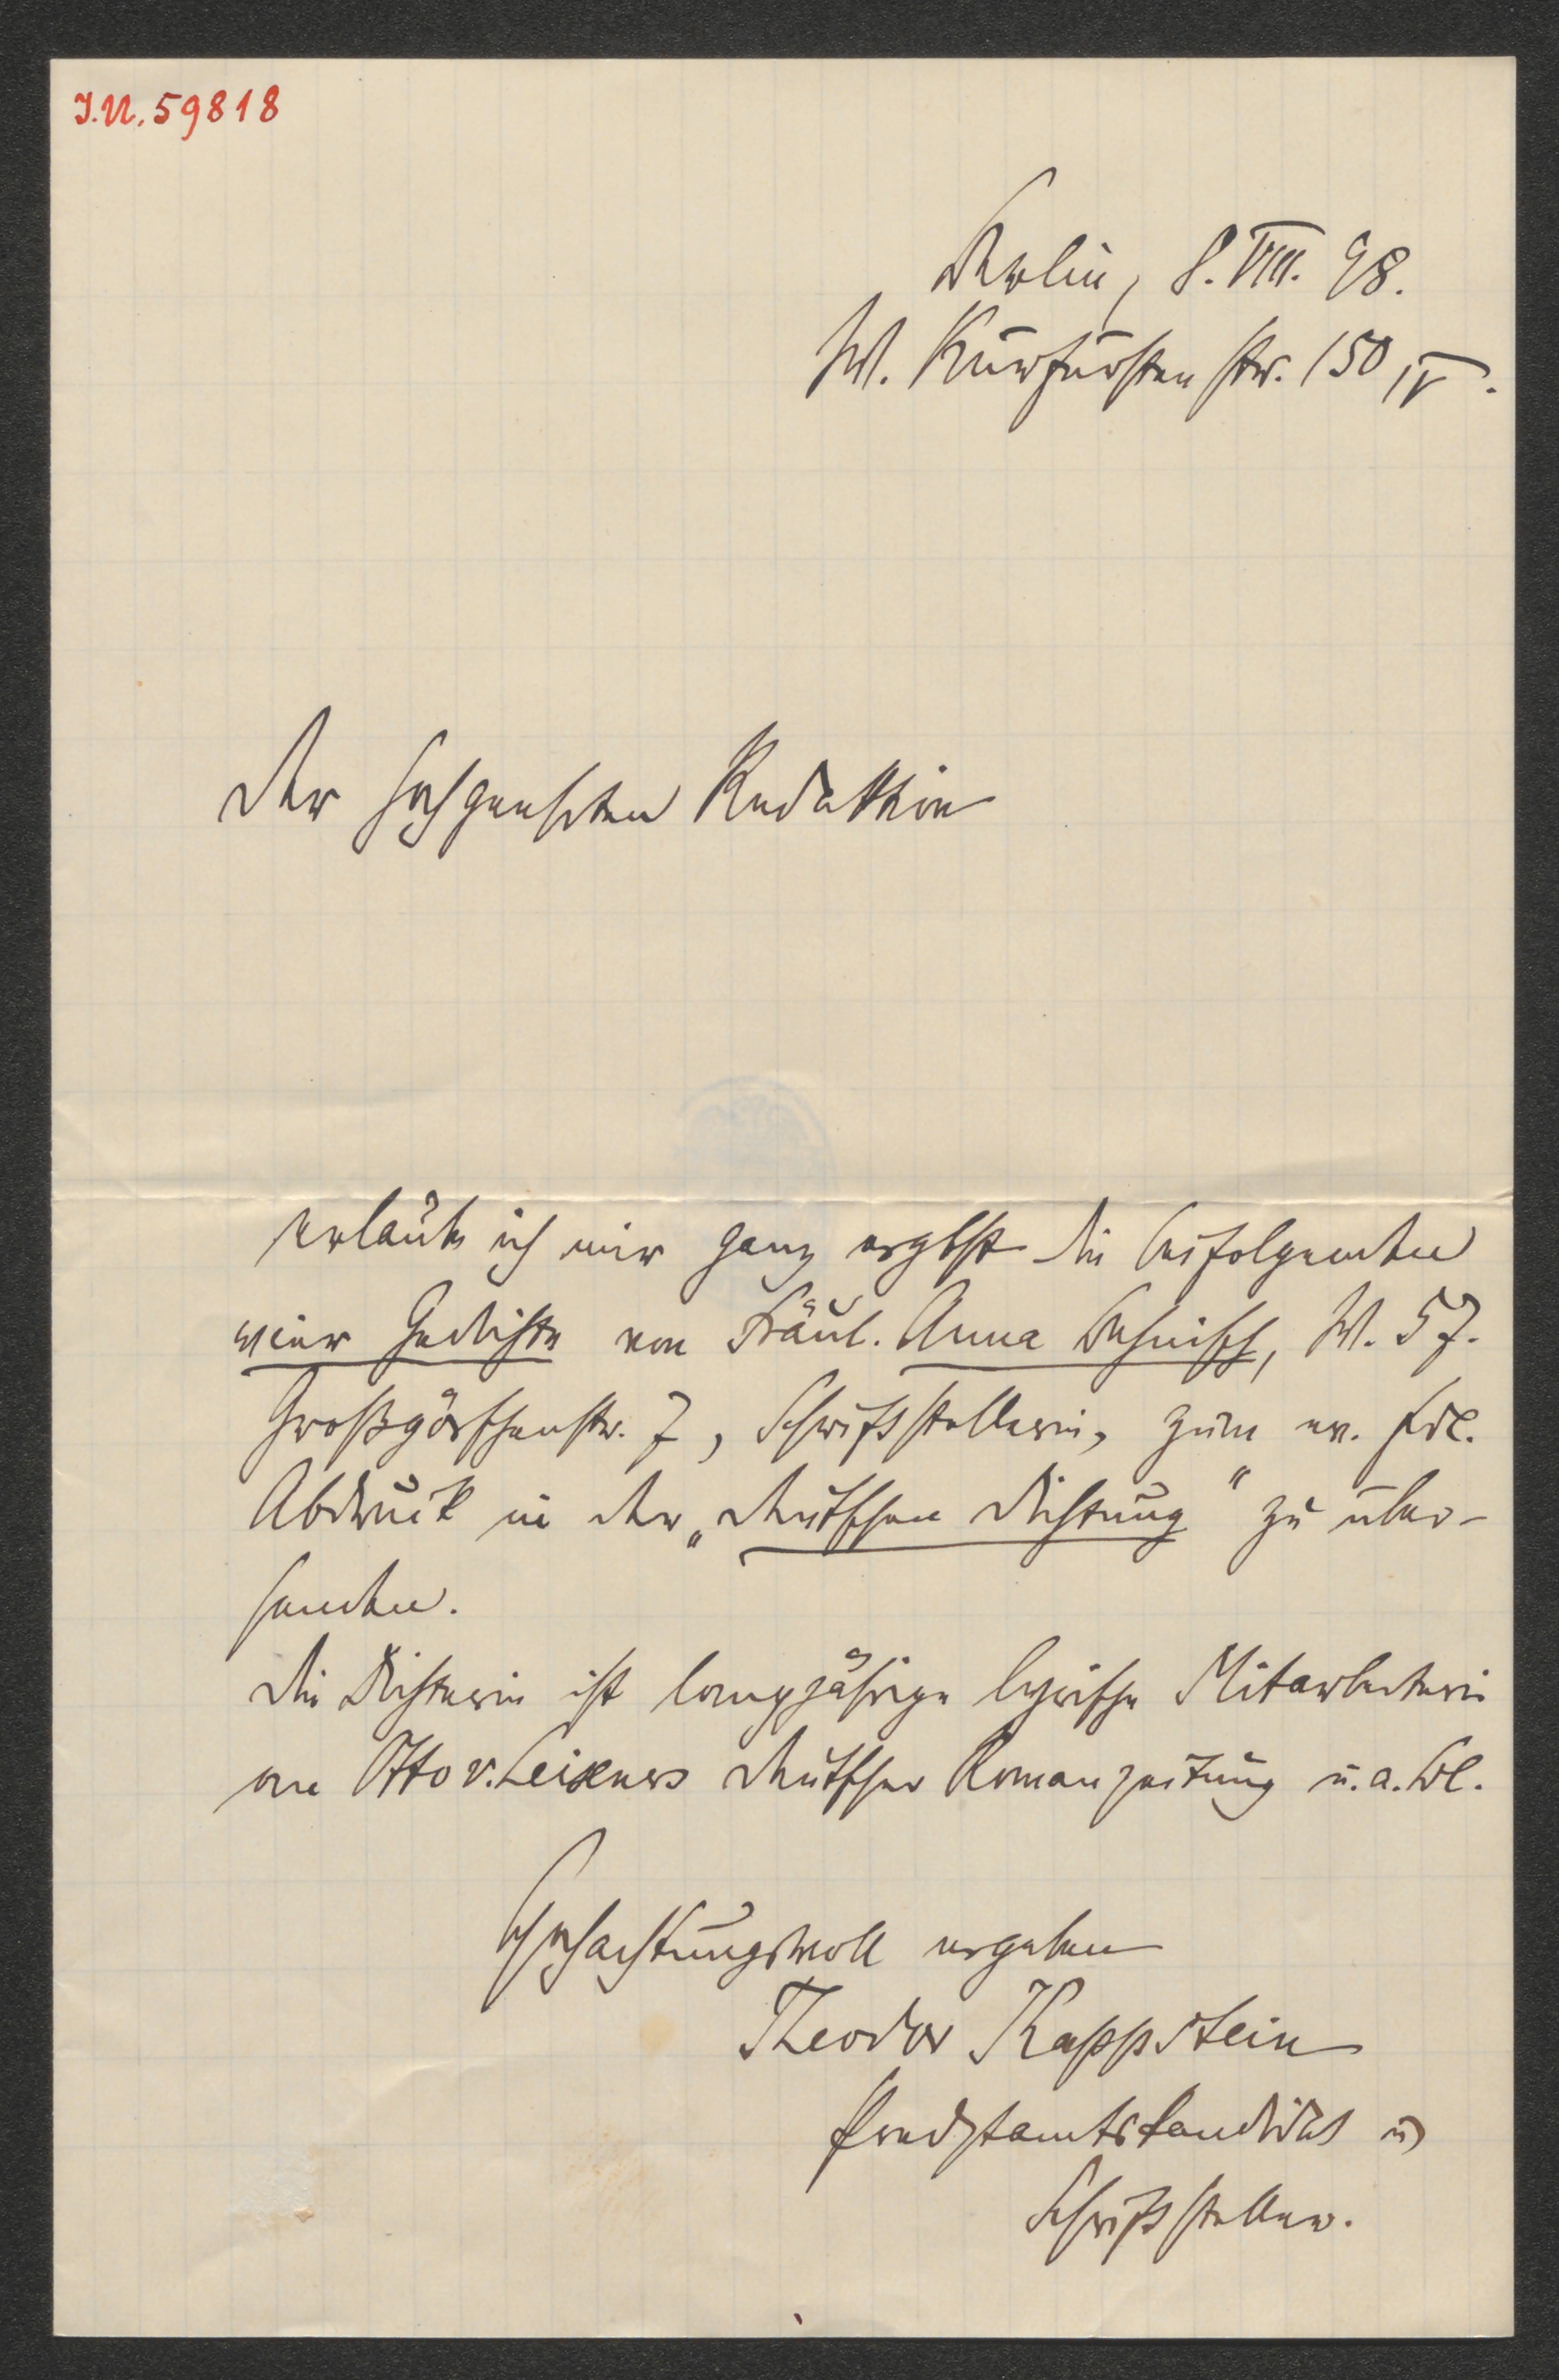 J.N. 59818
Berlin, 8. VIII. 98.
W. Kurfürstenstr. 150 IV.
Der hochgeehrten Redaktion
erlaube ich mir ganz ergbst die beifolgenden
vier Gedichte von Fräul. Anna W. 57.
Großgörschenstr. 7, Schriftstellerin, zum ev. frdl.
Abdruck in der „Deutschen Dichtung" zu über-
senden.
Die Dichterin ist langjährige lyrische Mitarbeiterin
an Otto v. Leixners Deutscher Romanzeitung u. a. Bl.
Hochachtungsvoll ergeben
Theodor Kappstein
Predigtamtskandidat u
Schriftsteller.